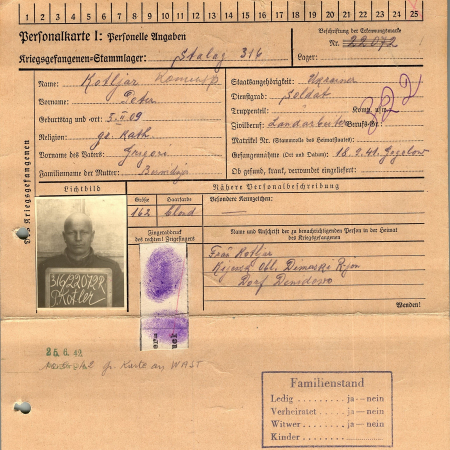 1 2 3 4 5 6 7 8 9 10 11 12 13 14 15 16 17 18 19 20 21 22 23 24 25
Personalkarte I: Personelle Angaben
Kriegsgefangenen-Stammlager: Stalag 316
Beschriftung der Erkennungsmarke
Nr. 22072
Lager:
Des Kriegsgefangenen
Name: Kotljar
Vorname: Peter
Geburtstag und -ort: 09
Religion: gr. Kath.
Vorname des Vaters: Grigori
Familienname der Mutter:
Staatsangehörigkeit: Ukrainer
Dienstgrad: Soldat
Truppenteil: Komp. usw.:
Zivilberuf: Landarbeiter Berufs-Gr.:
Matrikel Nr. (Stammrolle des Heimatstaates):
Gefangennahme (Ort und Datum): 18.9.41. Gogolow
Ob gesund, krank, verwundet eingeliefert:
322
Lichtbild
316/22072R
P.Kotler
Nähere Personalbeschreibung
Größe Haarfarbe Besondere Kennzeichen:
162 blond —
Fingerabdruck
des rechten! Zeigefingers
Name und Anschrift der zu benachrichtigenden Person in der Heimat
des Kriegsgefangenen
Frau Kotljar
Obl. Rjon
Dorf Demidowo
Wenden!
25.6.42
Karte an WASt
Familienstand
Ledig . . . . . . . . . ja — nein
Verheiratet . . . . . ja — nein
Witwer . . . . . . . . ja — nein
Kinder . . . . . . . . ...............